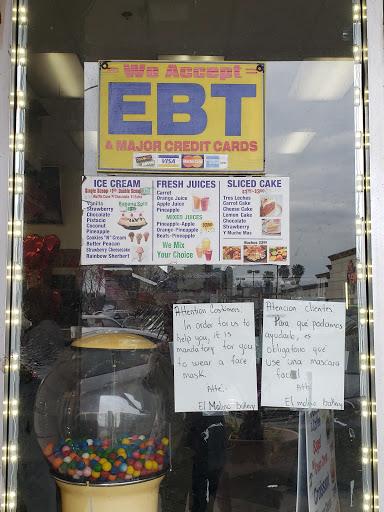 We Accept
EBT
& MAJOR CREDIT CARDS
VISA
ICE CREAM
Vanilla
Strawberry
Chocolate
Pistacio
Coconut
Pineapple
Cookies "N" Cream
Butter Peacan
Strawberry Cheesecake
Rainbow Sherbert
Banana Split
FRESH JUICES
Carrot
Orange Juice
Apple Juice
Pineapple
MIXED JUICES
Pineapple-Apple
Orange-Pineapple
Beats-Pineapple
We Mix
Your Choice
SLICED CAKE
Tres Leches
Carrot Cake
Cheese Cake
Lemon Cake
Chocolate
Strawberry
Y Mucho Mas
Attention Customers.
In order for us to
help you, it is
mandatory for you
to wear a face
mask.
Atte.
El Molino bakery
Atencion clientes
Para que podamos
ayudarlo, es
obligatorio que
use una mascara
facial
Atte
El molino bakery